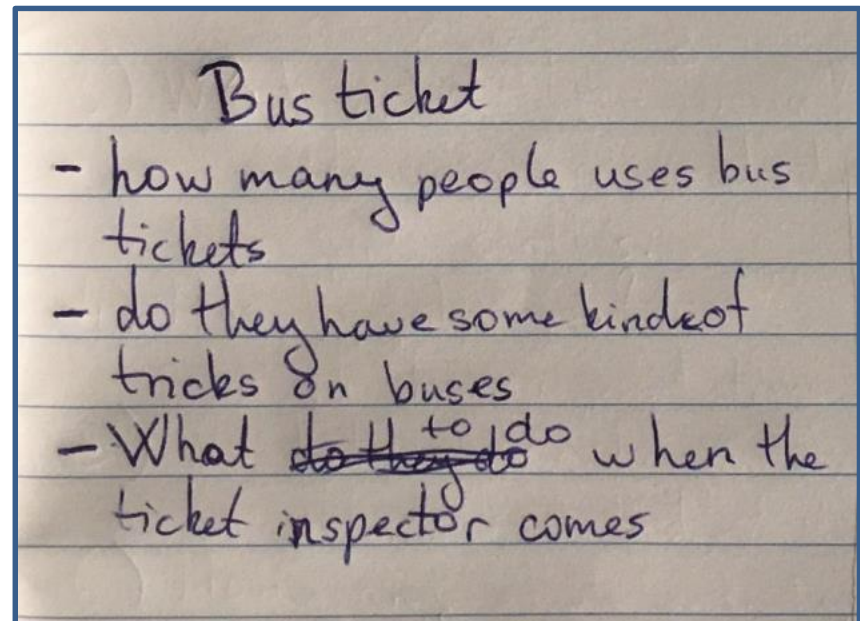 Bus ticket
- how many people uses bus
tickets
- do they have some kind of
tricks on buses
- What to do when the
ticket inspector comes